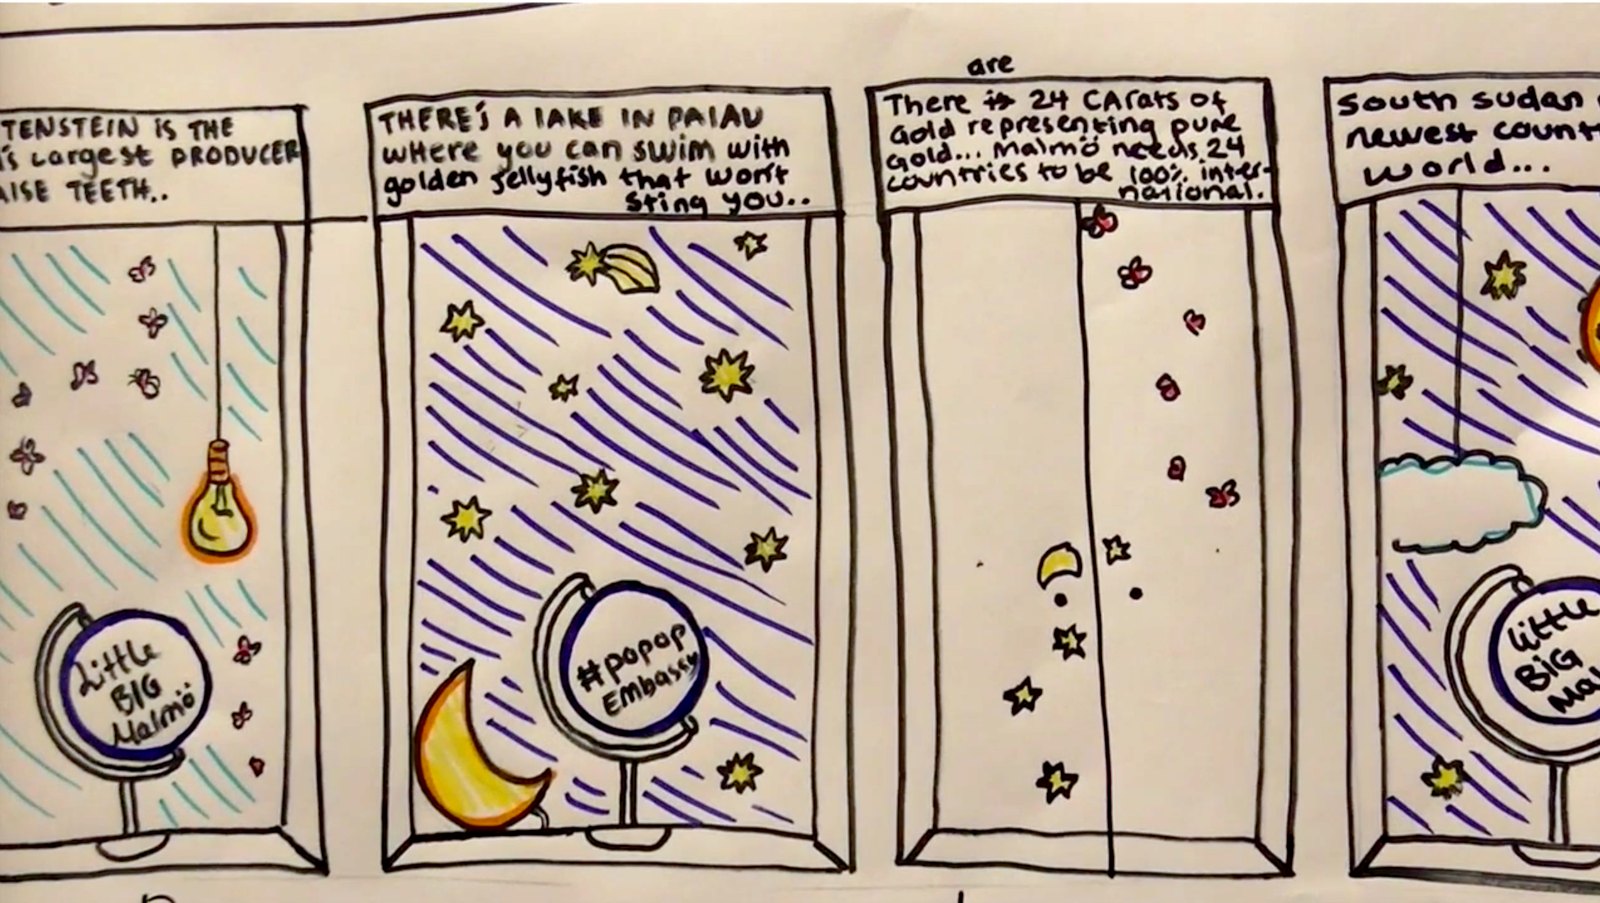 TENSTEIN IS THE
'S Largest PRODUCER
TEETH..
THERE'S A LAKE IN PALAU
WHERE you can SWIM WITH
golden Jellyfish that won't
Sting you..
are
There is 24 CArats of
Gold representing pure
Gold... Malmö needs 24
countries to be 100% inter-
national.
South Sudan
newest count
world...
Little
BIG
Malmö
#popop
Embassy
Little
BiG
Mal